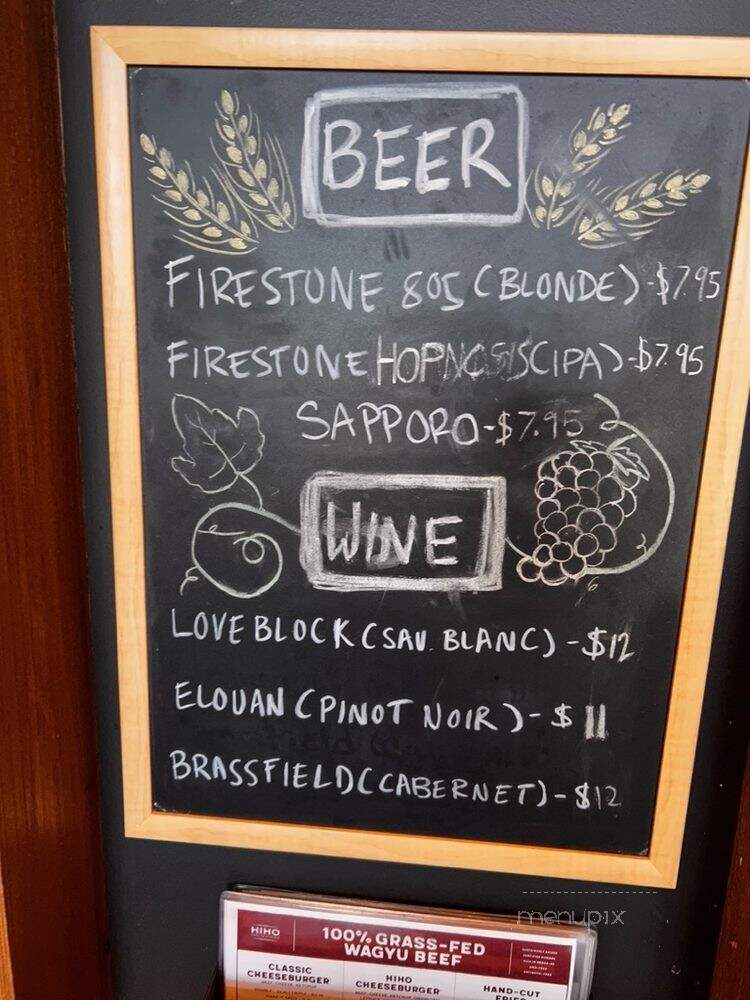 BEER
FIRESTONE 805 (BLONDE) - $7.95
FIRESTONE HOPNOSIS (IPA) - $7.95
SAPPORO - $7.95
WINE
LOVEBLOCK (SAV. BLANC) - $12
ELOUAN (PINOT NOIR) - $11
BRASSFIELD (CABERNET) - $12
menupix
HIHO
100% GRASS-FED
WAGYU BEEF
CLASSIC
CHEESEBURGER
HIHO
CHEESEBURGER
HAND-CUT
FRIES